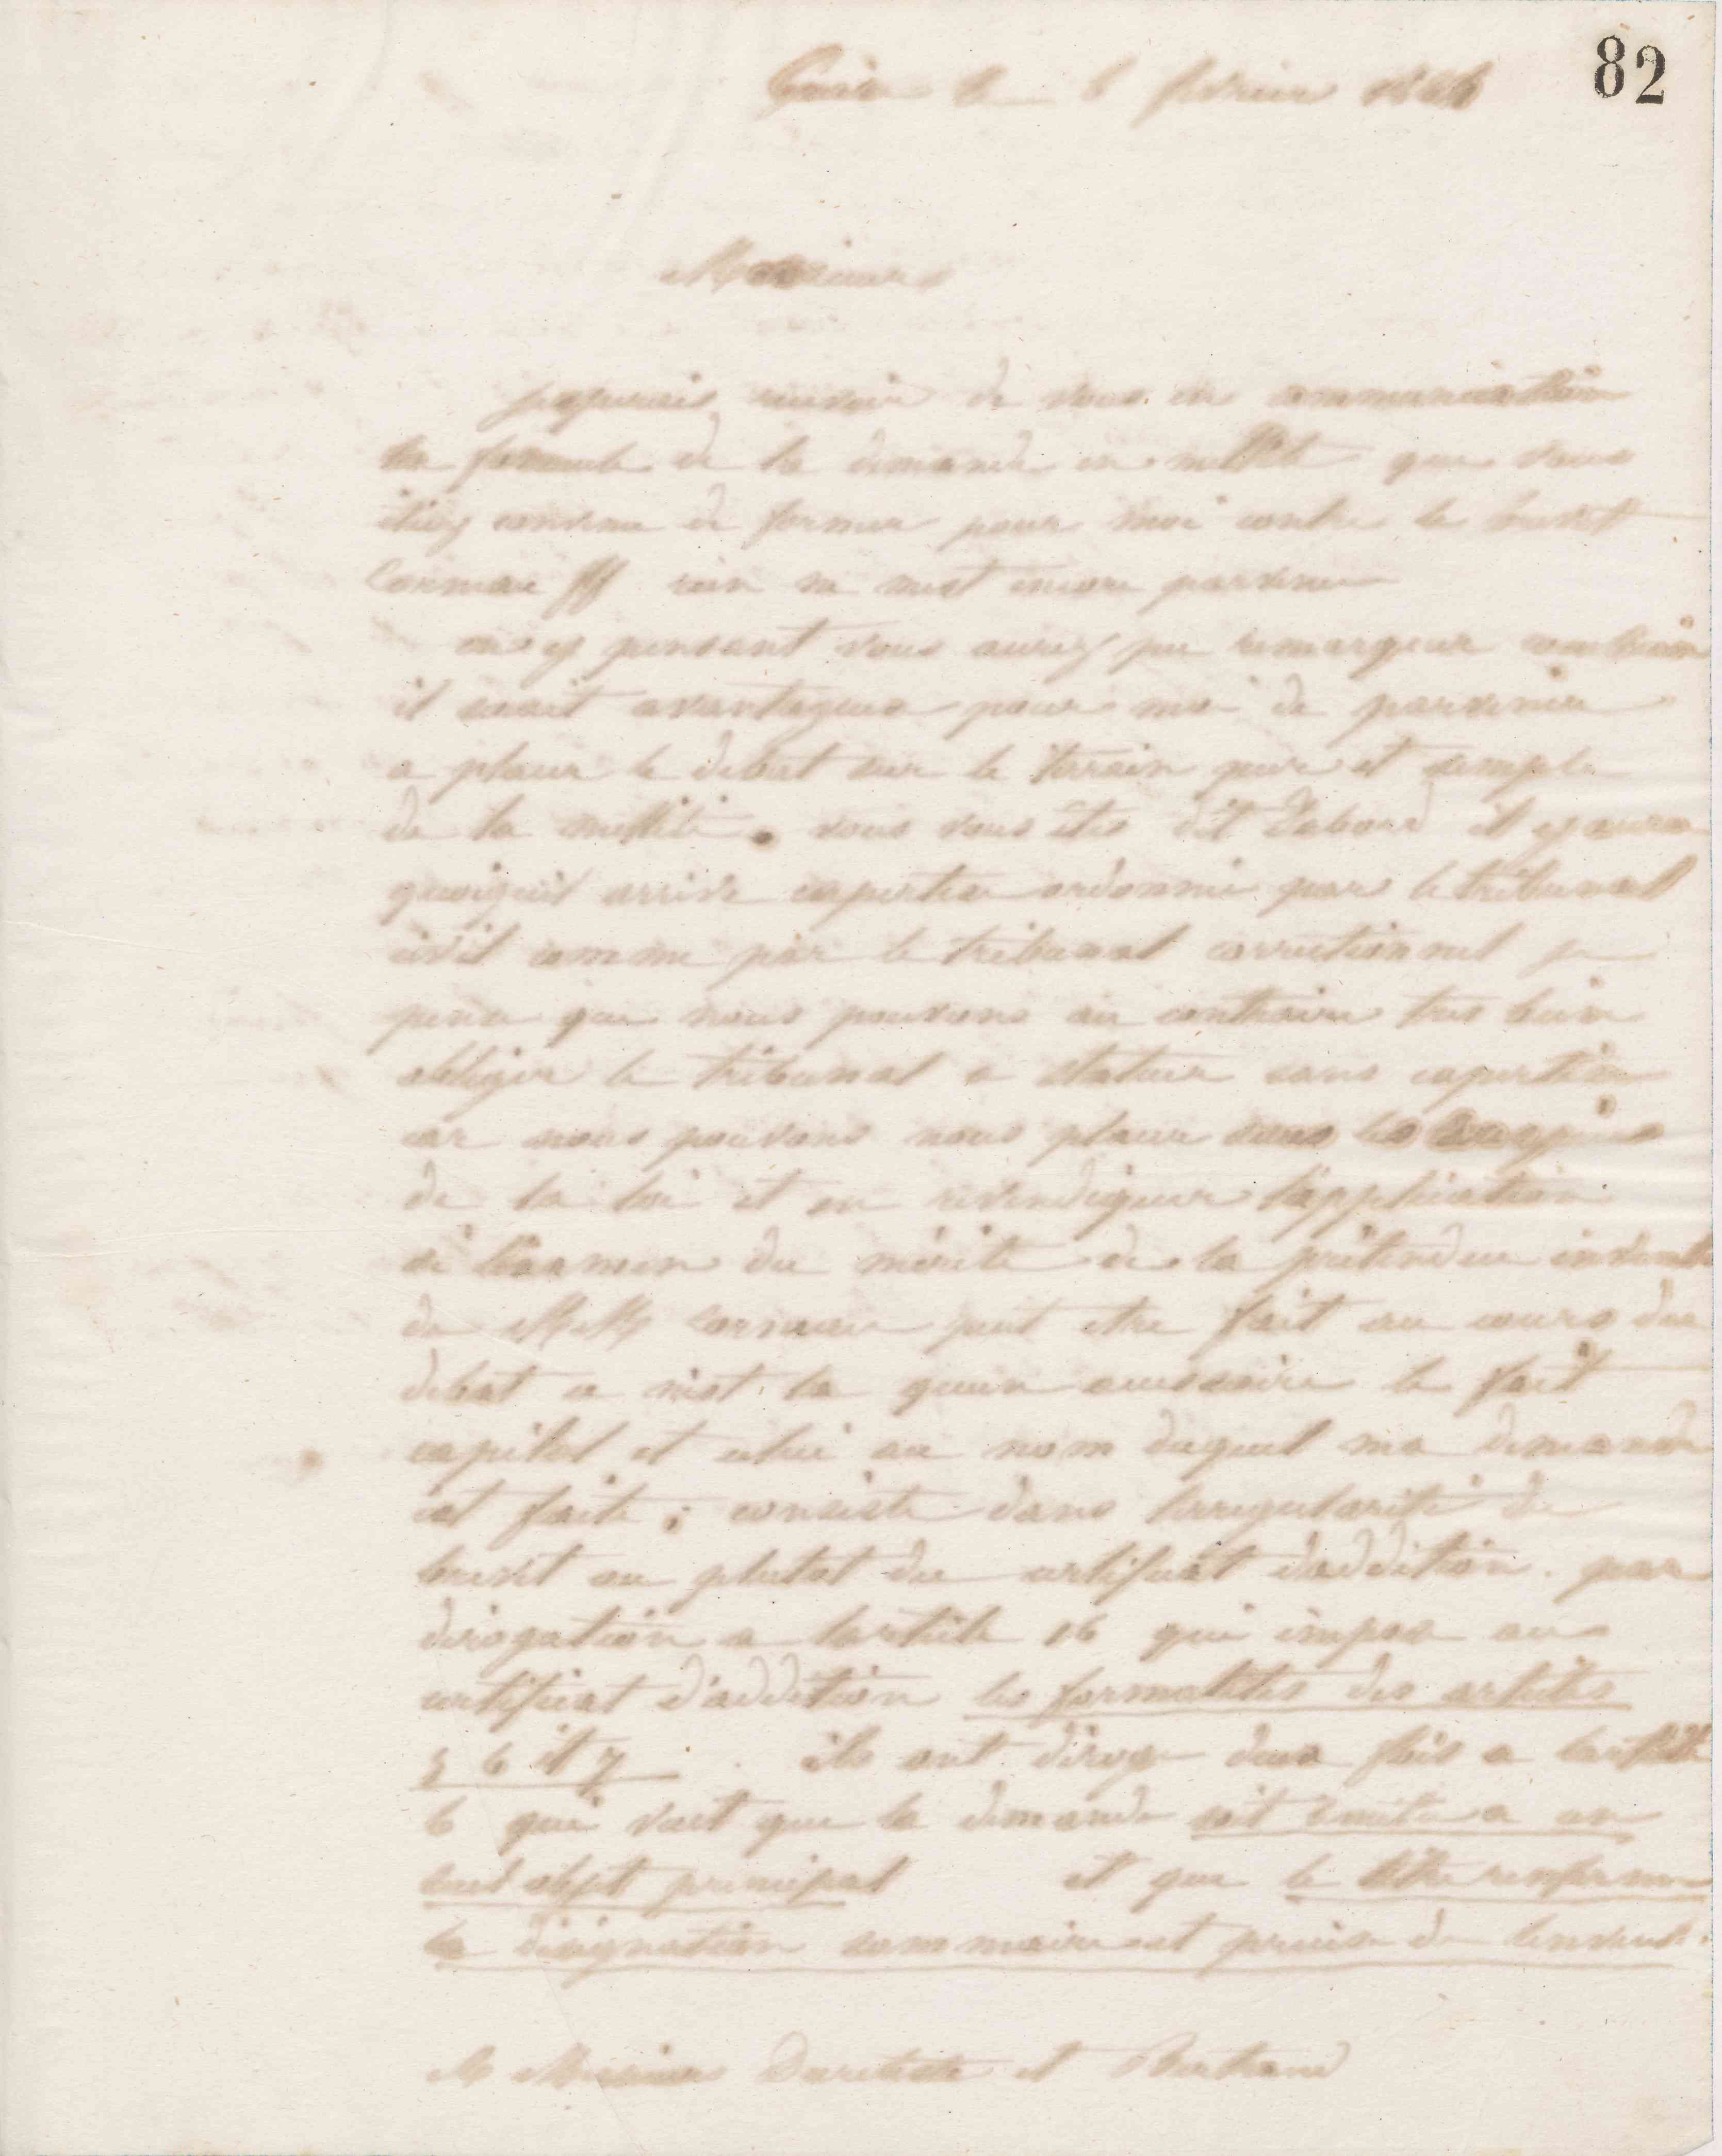 82
Guise le 6 février
Messieurs
je pensais recevoir de vous en communication
la formule de la demande en nullité que vous
étiez convenu de former pour moi contre le brevet
Corneau ff rien ne mest encore parvenu
en y pensant vous aurez pu remarquer combien
il serait avantageux pour moi de parvenir
a placer le debat sur le terrain pur et simple
de la nullité. vous vous êtes dit dabord il y aura
quoiquil arrive expertise ordonnée par le tribunal
civil comme par le tribunal correctionnel je
pense que nous pouvons au contraire tres bien
obliger le tribunal a statuer sans expertise
car nous pouvons nous placer sous les
de la loi et en revendiquer lapplication
si lexamen du mérite de la prétendue invention
de MM Corneau peut etre fait au cours du
debat ce nest la quun accessoire le fait
capital et celui au nom duquel ma demande
est faite ; consiste dans lirregularité du
brevet ou plutot du certificat daddition. par
dérogation a larticle 16 qui impose aux
certificat d'addition les formalités des articles
5 6 et 7. ils ont dérogé deux fois a larticle
6 qui veut que la demande soit limitée a un
seul objet principal et que le titre renferme
la désignation sommaire et précise de linvent.
A Messieurs et Bertrand